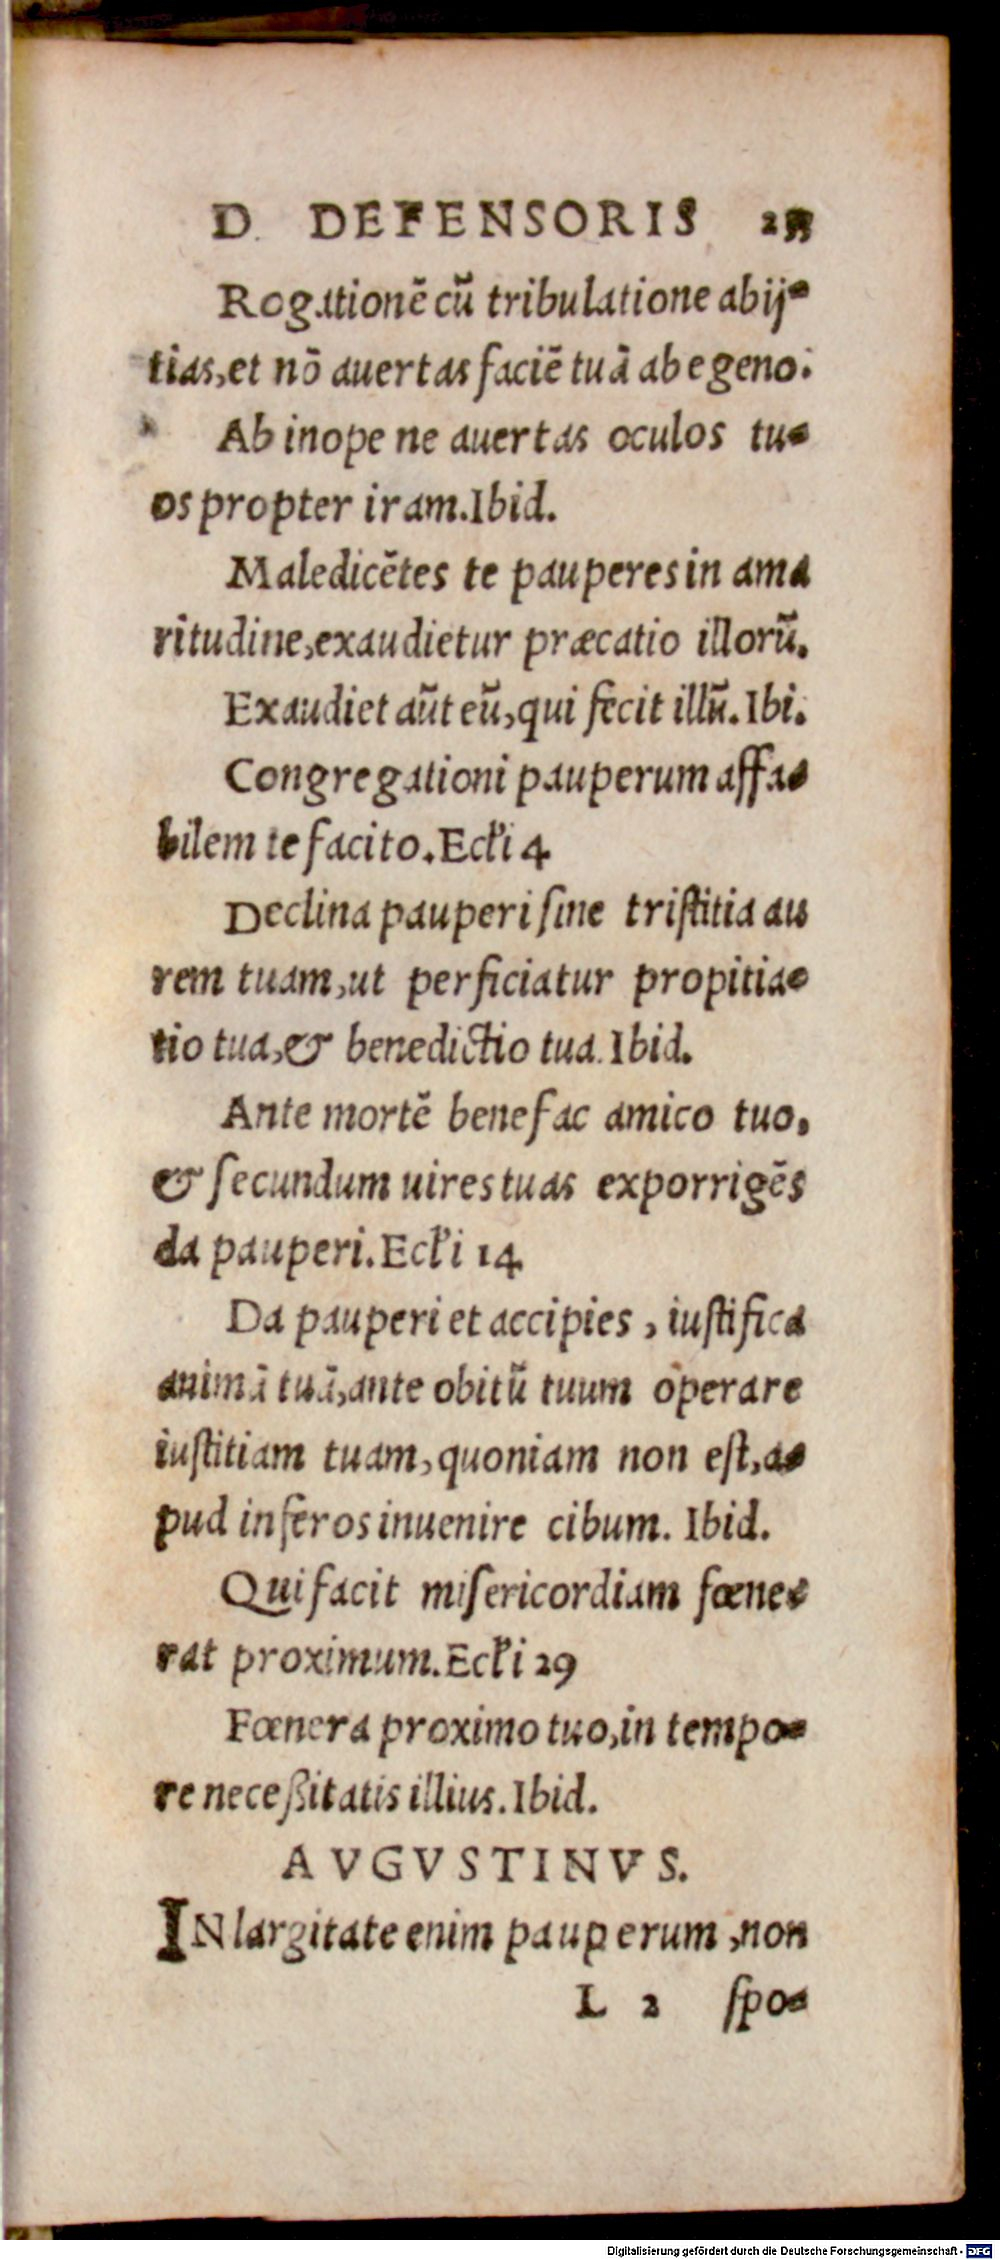 D. DEFENSORIS
Rogationē cū tribulatione abij-
tias, et nō auertas faciē tuā ab egeno.
Ab inope ne auertas oculos tu-
os propter iram. Ibid.
Maledicētes te pauperes in ama
ritudine, exaudietur præcatio illorū.
Exaudiet aūt eū, qui fecit illū. Ibi.
Congregationi pauperum affa-
bilem te facito. Ecƚi 4
Declina pauperi ſine triſtitia au
rem tuam, ut perficiatur propitia-
tio tua, & benedictio tua. Ibid.
Ante mortē benefac amico tuo,
& ſecundum uires tuas exporrigēs
da pauperi. Ecƚi 14
Da pauperi et accipies, iuſtifica
animā tuā, ante obitū tuum operare
iuſtitiam tuam, quoniam non eſt, a-
pud inferos inuenire cibum. Ibid.
Qui facit miſericordiam fœne-
rat proximum. Ecƚi 29
Fœnera proximo tuo, in tempo-
re neceßitatis illius. Ibid.
AVGVSTINVS.
IN largitate enim pauperum, non
L 2 ſpo-
Digitalisierung gefördert durch die Deutsche Forschungsgemeinschaft - DFG